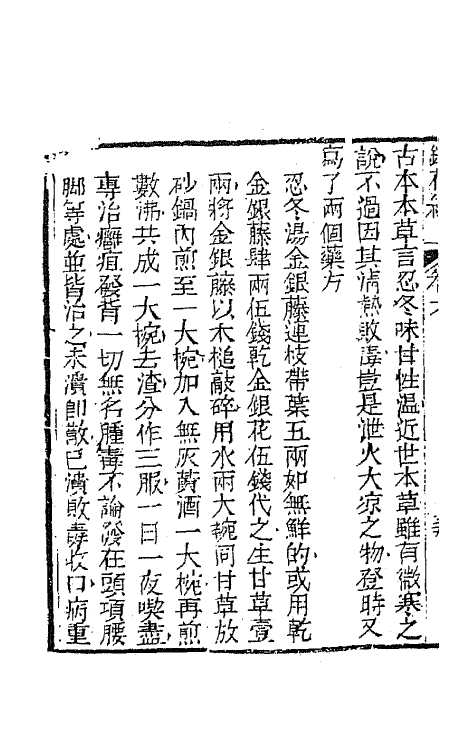 古本本草言忍冬味甘性温近世本草雖有微寒之
說不過因其清熱敗毒豈是泄火大凉之物登時又
寫了兩個藥方
忍冬湯金銀藤連枝帶葉五兩如無鮮的或用乾
金銀藤肆兩伍錢乾金銀花伍錢代之生甘草壹
兩將金銀藤以木槌敲碎用水兩大碗同甘草放
砂鍋內煎至一大椀加入無灰黃酒一大椀再煎
數沸共成一大椀去渣分作三服一日一夜喫盡
專治癰疽發背一切無名腫毒不論發在頭項腰
脚等處並皆治之未潰即散已潰敗毒收口病重